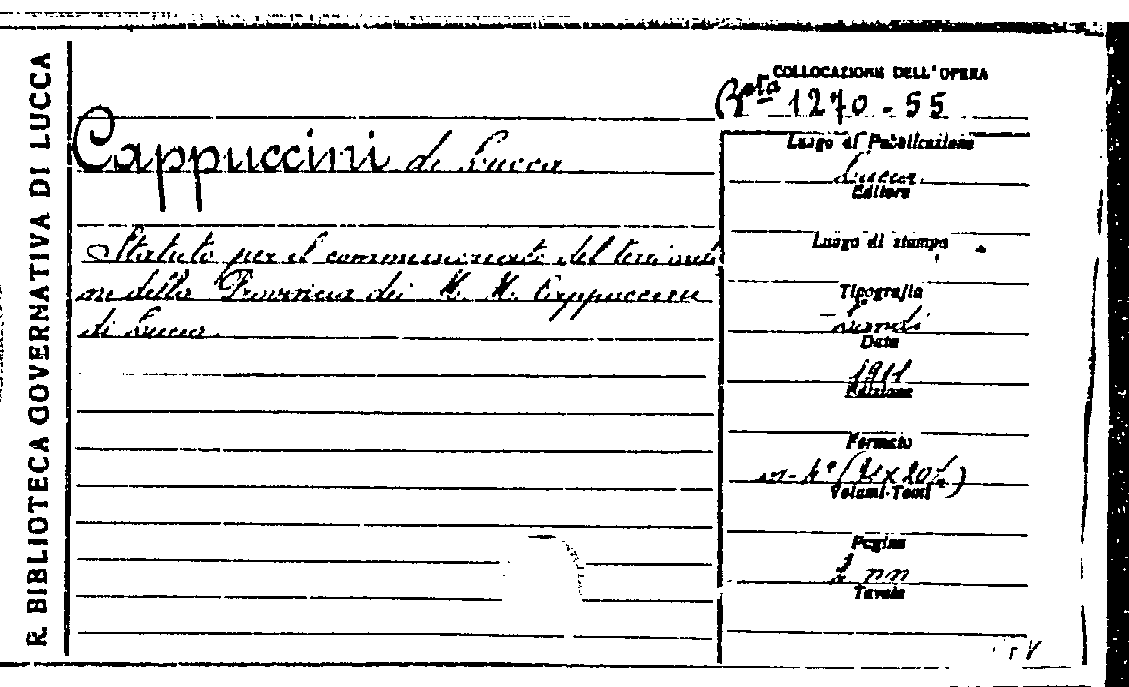 R. BIBLIOTECA GOVERNATIVA DI LUCCA
COLLOCAZIONE DELL'OPERA
Bta 1270-55
Cappuccini di Lucca
Statuto per il del
della Provincia dei M. M. Cappuccini
di Lucca.
Luogo di Pubblicazione
Lucca
Editore
Luogo di stampa
Tipografia
Landi
Data
1911
Edizione
Formato
in-4°
Volumi-Tomi
Pagine
nn
Tavole